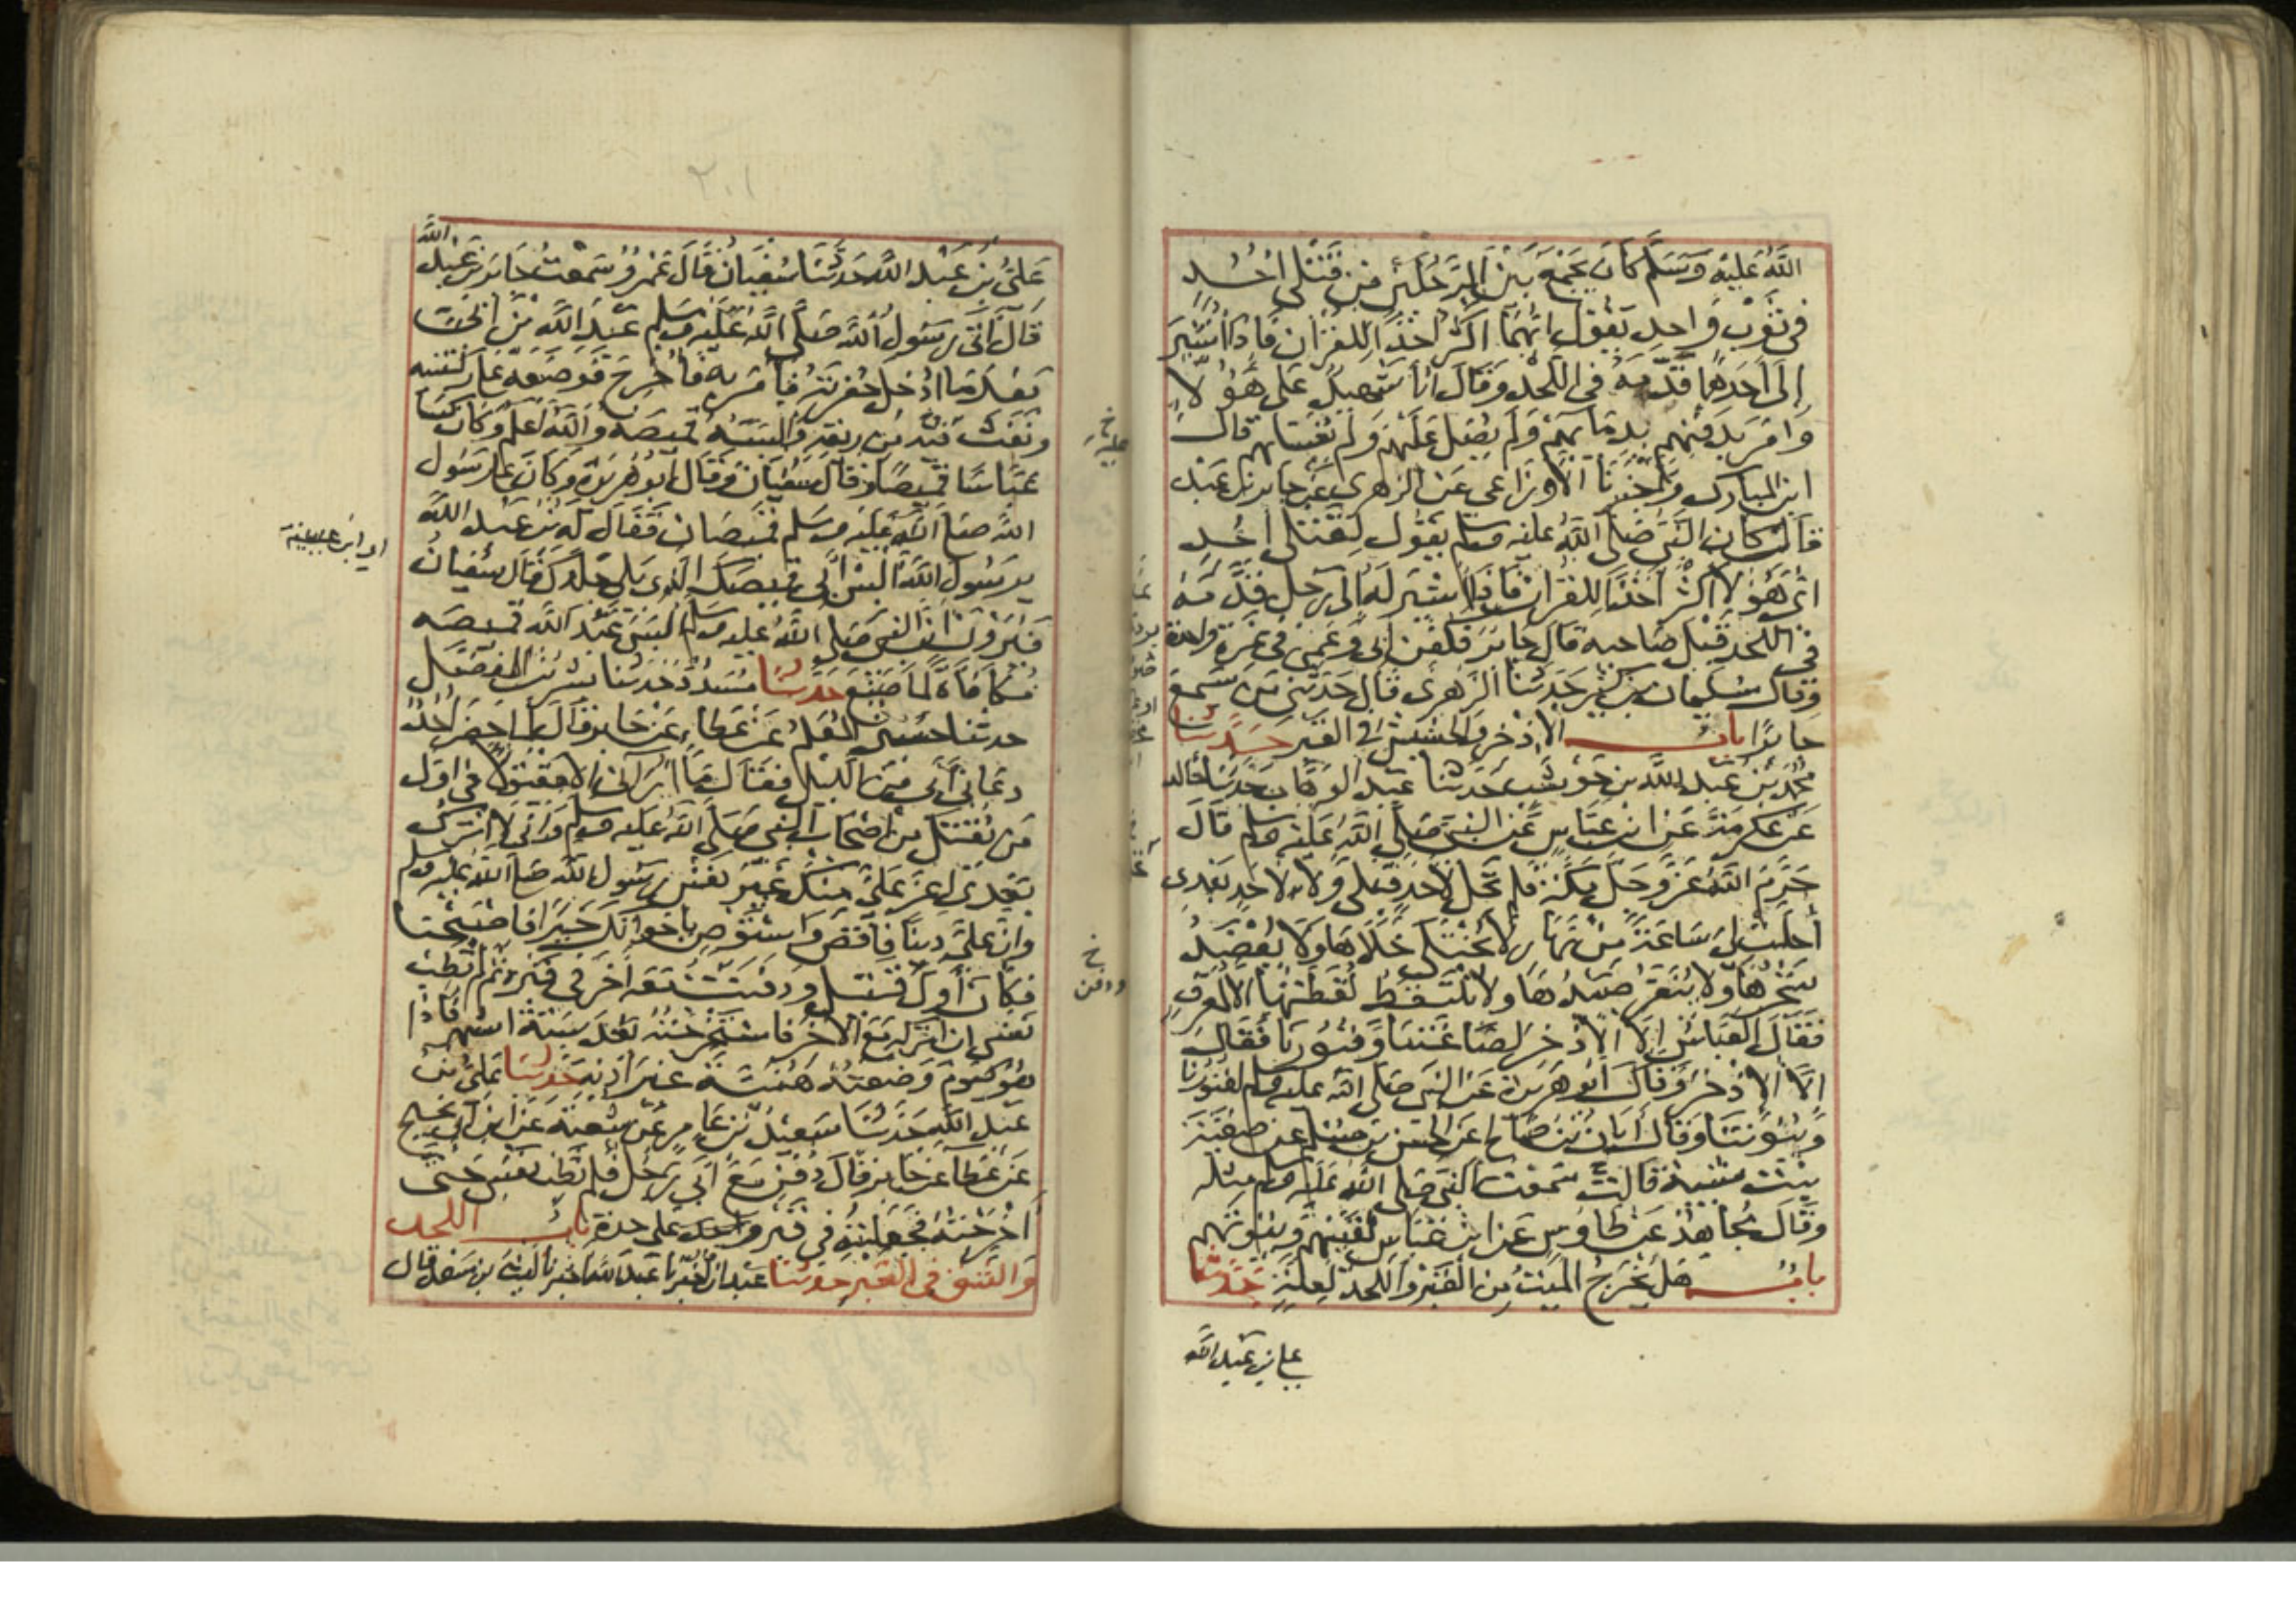 الله عليه وسلم كان يجمع بين الرجلين من قتلى احد
في ثوب واحد يقول ايهما اكثر اخذا للقرآن فاذا اشير
إلى احدهما قدمه في اللحد وقال أنا شهيد على هؤلاء
وامر بدفنهم بدمائهم ولم يصل عليهم ولم يغسلهم قال
ابن المبارك واخبرنا الاوزاعي عن الزهري عن جابر بن عبد
قال كان النبي صلى الله عليه وسلم يقول لقتلى احد
اي هؤلاء اكثر اخذا للقرآن فاذا اشير له الى رجل قدمه
في اللحد قبل صاحبه قال جابر فكفن ابي وعمي في نمرة واحدة
وقال سليمان بن كثير حدثنا الزهري قال حدثني من سمع
جابرا باب الاذخر والحشيش في القبر حدثنا
محمد بن عبد الله بن حوشب حدثنا عبد الوهاب حدثنا خالد
عن عكرمة عن ابن عباس عن النبي صلى الله عليه وسلم قال
حرم الله عز وجل مكة فلم تحل لاحد قبلي ولا لاحد بعدي
أحلت لي ساعة من نهار لا يختلى خلاها ولا يعضد
شجرها ولا ينفر صيدها ولا تلتقط لقطتها الا لمعرف
فقال العباس إلا الاذخر لصاغتنا وقبورنا فقال
إلا الاذخر وقال ابو هريرة عن النبي صلى الله عليه وسلم لقبورنا
وبيوتنا وقال أبان بن صالح عن الحسن بن مسلم عن صفية
بنت شيبة قالت سمعت النبي صلى الله عليه وسلم مثله
وقال مجاهد عن طاوس عن ابن عباس لقينهم وبيوتهم
باب هل يخرج الميت من القبر واللحد لعلة حدثنا
علي بن عبد الله
٢٠١
علي بن عبد الله حدثنا سفيان قال عمرو سمعت جابر بن عبد الله
قال اتى رسول الله صلى الله عليه وسلم عبد الله بن ابي
بعد ما ادخل حفرته فأمر به فأخرج فوضعه على ركبتيه
ونفث فيه من ريقه والبسه قميصه والله اعلم وكان كسا
عباسا قميصا وقال سفيان وقال ابو هريرة وكان على رسول
الله صلى الله عليه وسلم قميصان فقال له بن عبد الله
يرسول الله البس ابي قميصك الذي يلي جلدك قال سفيان
فيرون ان النبي صلى الله عليه وسلم البس عبد الله قميصه
مكافاة لما صنع حدثنا مسدد حدثنا بشر بن المفضل
حدثنا حسين المعلم عن عطاء عن جابر قال لما احضر احد
دعاني أبي من الليل فقال ما أراني الا مقتولا في اول
من يقتل من اصحاب النبي صلى الله عليه وسلم واني لا اترك
بعدي اعز علي منك غير نفس رسول الله صلى الله عليه وسلم
وان علي دينا فاقض واستوص باخواتك خيرا فاصبحنا
فكان أول قتيل ودفنت معه آخر في قبر ثم لم تطب
نفسي ان اتركه مع الآخر فاستخرجته بعد ستة اشهر فاذا
هو كيوم وضعته هنية غير اذنه حدثنا علي بن
عبد الله حدثنا سعيد بن عامر عن شعبة عن ابن ابي نجيح
عن عطاء عن جابر قال دفن مع ابي رجل فلم تطب نفسي حتى
أخرجته فجعلته في قبر على حدة باب اللحد
والشق في القبر حدثنا عبدان اخبرنا عبد الله اخبرنا الليث بن سعد قال
اي ابن عيينة
خ
خ
ودفن